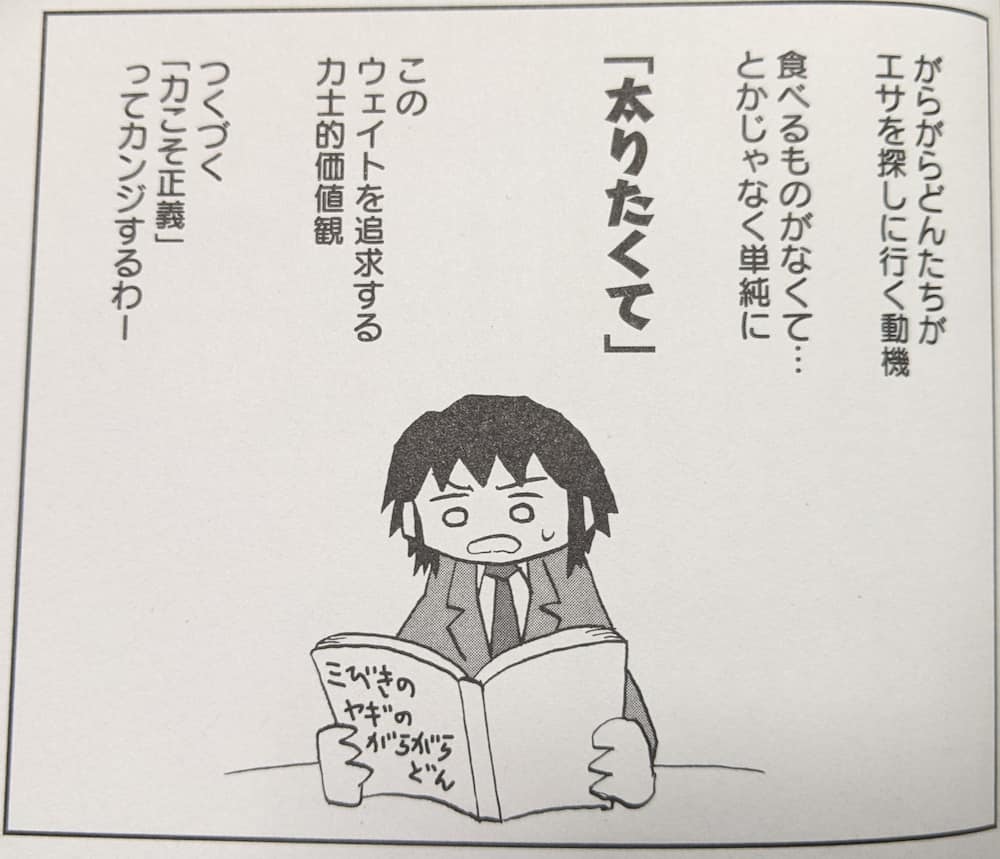 がらがらどんたちが
エサを探しに行く動機
食べるものがなくて…
とかじゃなく単純に
「太りたくて」
この
ウェイトを追求する
力士的価値観
つくづく
「力こそ正義」
ってカンジするわー
三びきの
ヤギの
がらがら
どん